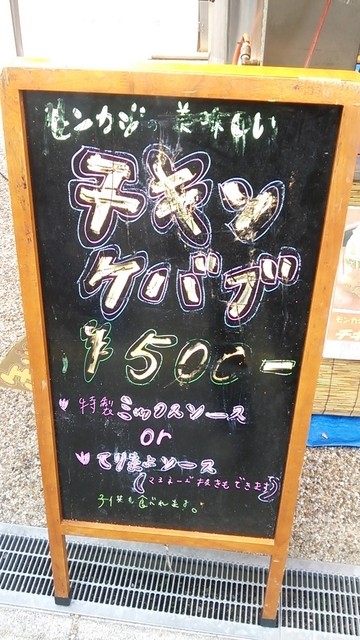 モンカジの美味しい
チキン
ケバブ
¥500-
特製ミックスソース
or
てりまよソース
(マヨネーズ抜きもできます)
も食べれます。